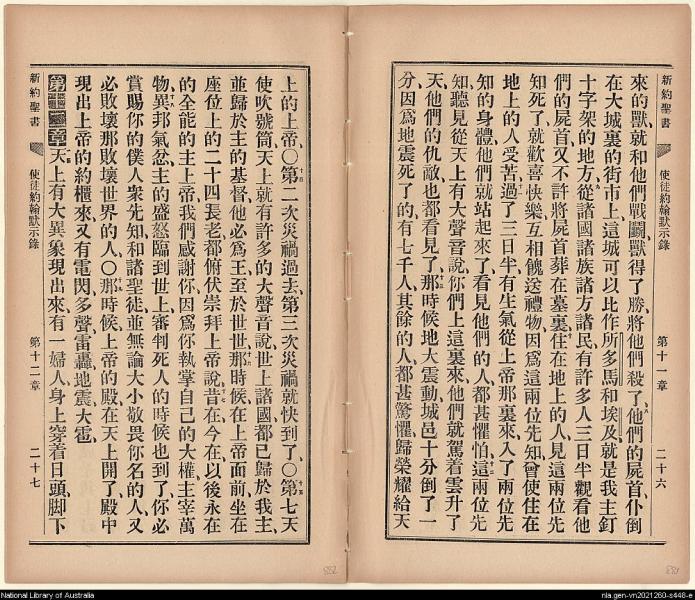 新約聖書 使徒約翰默示錄 第十一章 二十六
來的獸、就和他們戰鬭、獸得了勝、將他們殺了、他們的屍首、仆倒
在大城裏的街市上、這城可以比作所多馬和埃及、就是我主釘
十字架的地方、從諸國諸族諸方諸民、有許多人三日半觀看他
們的屍首、又不許將屍首葬在墓裏、住在地上的人、見這兩位先
知死了、就歡喜快樂、互相餽送禮物、因爲這兩位先知、曾使住在
地上的人受苦、過了三日半、有生氣從上帝那裏來、入了兩位先
知的身體、他們就站起來了、看見他們的人、都甚懼怕、這兩位先
知聽見從天上有大聲音說、你們上這裏來、他們就駕着雲升了
天、他們的仇敵也都看見了、那時候地大震動、城邑十分倒了一
分、因爲地震死了的、有七千人、其餘的人、都甚驚懼、歸榮耀給天
上的上帝、〇第二次災禍過去、第三次災禍就快到了、〇第七天
使吹號筒、天上就有許多的大聲音說、世上諸國、都已歸於我主、
並歸於主的基督、他必爲王、至於世世、那時候在上帝面前、坐在
座位上的二十四長老、都俯伏崇拜上帝說、昔在今在以後永在
的全能的主上帝、我們感謝你、因爲你執掌自己的大權、主宰萬
物、異邦氣忿、主的盛怒臨到世上、審判死人的時候也到了、你必
賞賜你的僕人、衆先知和諸聖徒、並無論大小敬畏你名的人、又
必敗壞那敗壞世界的人、〇那時候、上帝的殿在天上開了、殿中
現出上帝的約櫃來、又有電閃、多聲、雷轟、地震、大雹、
第十二章 天上有大異象現出來、有一婦人身上穿着日頭、脚下
新約聖書 使徒約翰默示錄 第十二章 二十七
National Library of Australia
nla.gen-vn2021260-s448-e